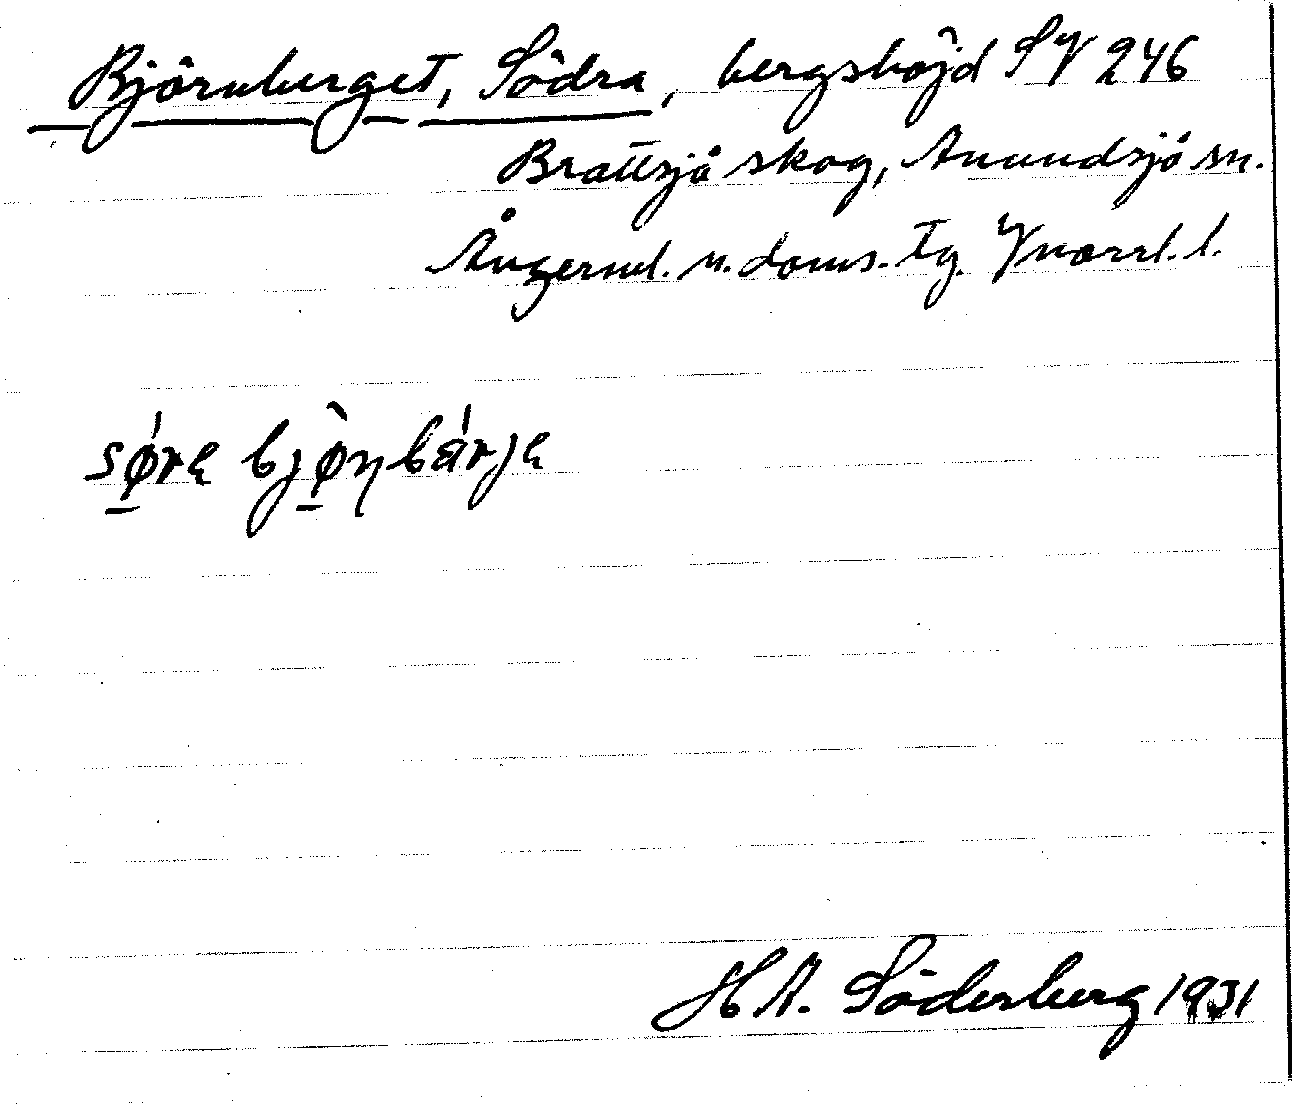 Björnberget, Södra, bergshöjd SV 246
Brattsjö skog, Anundsjö sn.
Ångerml. n. doms. tg. Vnorrl. l.
sǿrę bjø̀ṇbárję
H A. Söderberg 1931